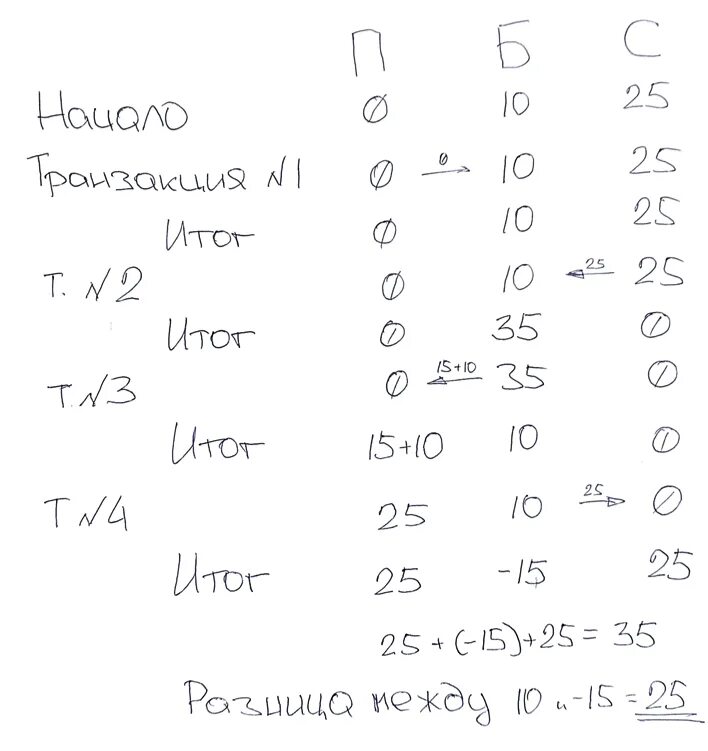 П Б С
Начало 0 10 25
Транзакция №1 0 0→ 10 25
Итог 0 10 25
Т. №2 0 10 ←25 25
Итог 0 35 0
Т. №3 0 ←15+10 35 0
Итог 15+10 10 0
Т №4 25 10 25→ 0
Итог 25 -15 25
25 + (-15) + 25 = 35
Разница между 10 и -15 = 25